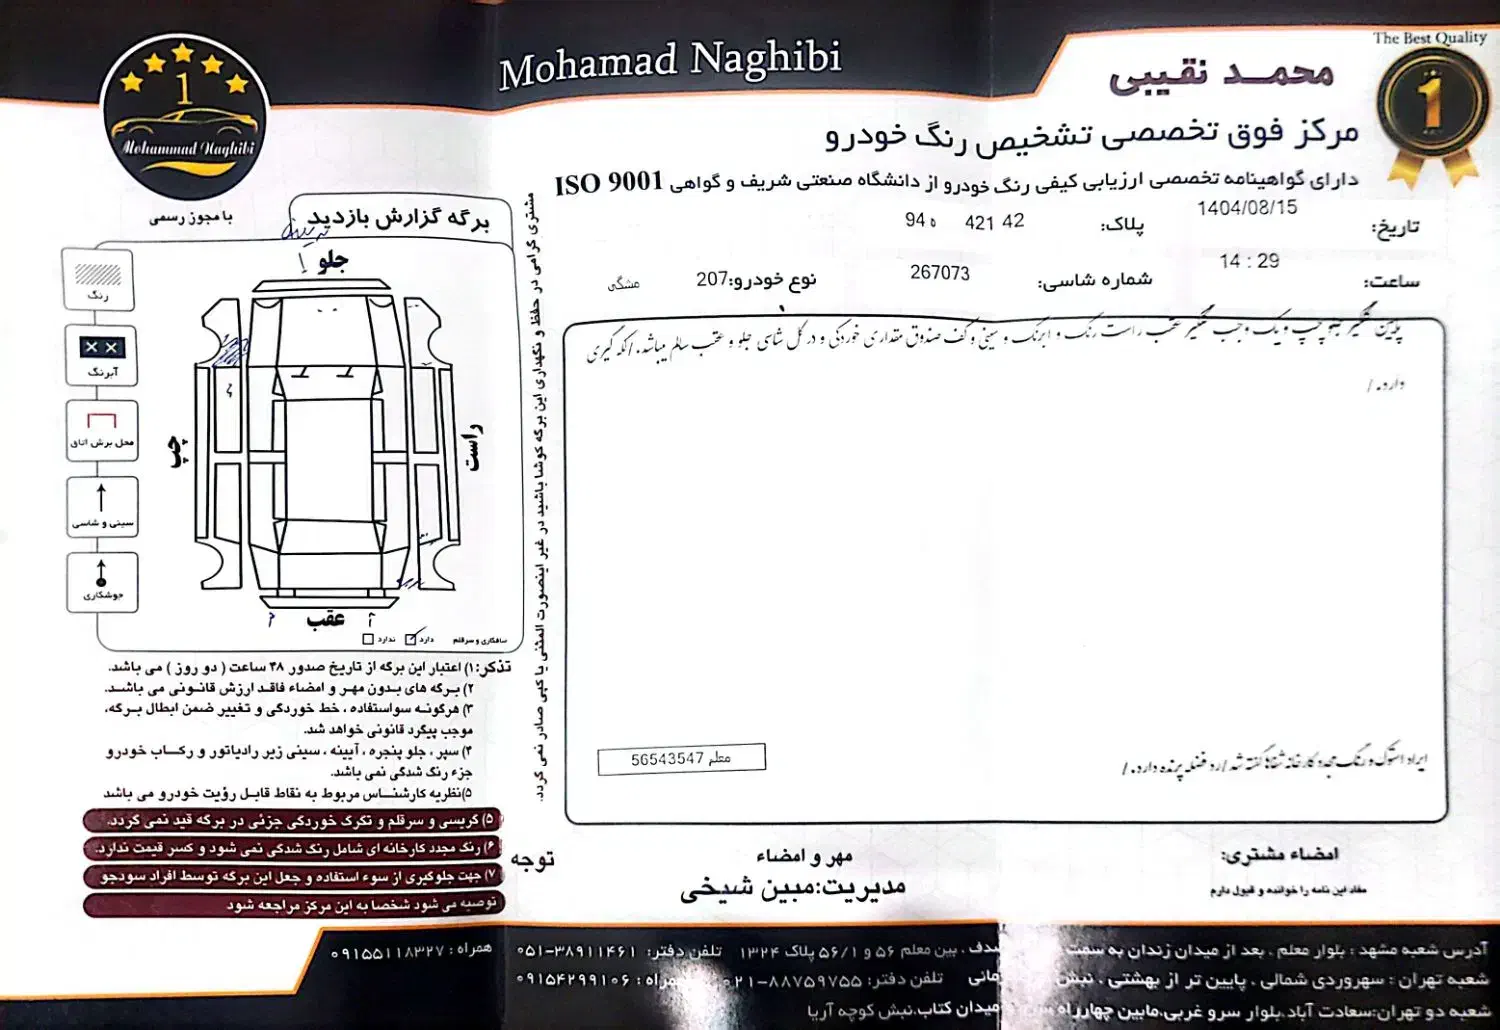 The Best Quality
Mohamad Naghibi
محمد نقیبی
1
Mohammad Naghibi
مرکز فوق تخصصی تشخیص رنگ خودرو
دارای گواهینامه تخصصی ارزیابی کیفی رنگ خودرو از دانشگاه صنعتی شریف و گواهی ISO 9001
با مجوز رسمی
تاریخ: 1404/08/15
پلاک: 42 421 ه 94
ساعت: 14 : 29
شماره شاسی: 267073
نوع خودرو: 207
مشگی
پایین گلگیر جلو چپ و یک وجب گلگیر عقب راست رنگ و ابرنگ و سینی و کف صندوق مقداری خوردگی و در کل شاسی جلو و عقب سالم میباشد. / لکه گیری
دارد. /
ایراد استوک و رنگ مجدد کارخانه شفاها گفته شد / رد فضله پرنده دارد. /
معلم 56543547
برگه گزارش بازدید
جلو
چپ
راست
عقب
رنگ
آبرنگ
محل برش اتاق
سینی و شاسی
جوشکاری
صافکاری و سرقلم دارد ندارد
مشتری گرامی در حفظ و نگهداری این برگه کوشا باشید در غیر اینصورت المثنی یا کپی صادر نمی گردد.
تذکر: ۱) اعتبار این برگه از تاریخ صدور ۴۸ ساعت ( دو روز ) می باشد.
۲) برگه های بدون مهر و امضاء فاقد ارزش قانونی می باشد.
۳) هرگونه سواستفاده ، خط خوردگی و تغییر ضمن ابطال برگه،
موجب پیگرد قانونی خواهد شد.
۴) سپر ، جلو پنجره ، آیینه ، سینی زیر رادیاتور و رکاب خودرو
جزء رنگ شدگی نمی باشد.
۵) نظریه کارشناس مربوط به نقاط قابل رؤیت خودرو می باشد
۵) گریسی و سرقلم و تگرگ خوردگی جزئی در برگه قید نمی گردد.
۶) رنگ مجدد کارخانه ای شامل رنگ شدگی نمی شود و کسر قیمت ندارد.
۷) جهت جلوگیری از سوء استفاده و جعل این برگه توسط افراد سودجو
توصیه می شود شخصا به این مرکز مراجعه شود
توجه
مهر و امضاء
مدیریت: مبین شیخی
امضاء مشتری:
مفاد این نامه را خوانده و قبول دارم
آدرس شعبه مشهد : بلوار معلم ، بعد از میدان زندان به سمت صدف ، بین معلم ۵۶ و ۵۶/۱ پلاک ۱۳۲۴ تلفن دفتر: ۳۸۹۱۱۴۶۱-۰۵۱ همراه : ۰۹۱۵۵۱۱۸۳۲۷
شعبه تهران : سهروردی شمالی ، پایین تر از بهشتی ، نبش تلفن دفتر: ۸۸۷۵۹۷۵۵-۰۲۱ همراه : ۰۹۱۵۴۲۹۹۱۰۶
شعبه دو تهران: سعادت آباد، بلوار سرو غربی، مابین چهارراه میدان کتاب، نبش کوچه آریا